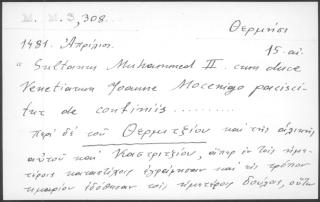 M. M. 3, 308.
Θερμήσι
1481. Ἀπρίλιος. 15. αἰ.
"Sultanus Muhammed II. cum duce
Venetiarum Joanne Mocenigo pacisci-
tur de confiniis ..........
περὶ δὲ τοῦ Θερμιτζίου καὶ τῆς ἁλικῆς
αὐτοῦ καὶ Καστριτζίου, ἅπερ ἐν τοῖς ἡμε-
τέροις καταστίχοις εὑρέθησαν καὶ τὸν τρόπον
τιμαρίου ἐδόθησαν τοῖς ἡμετέροις δούλοις, οὕτω